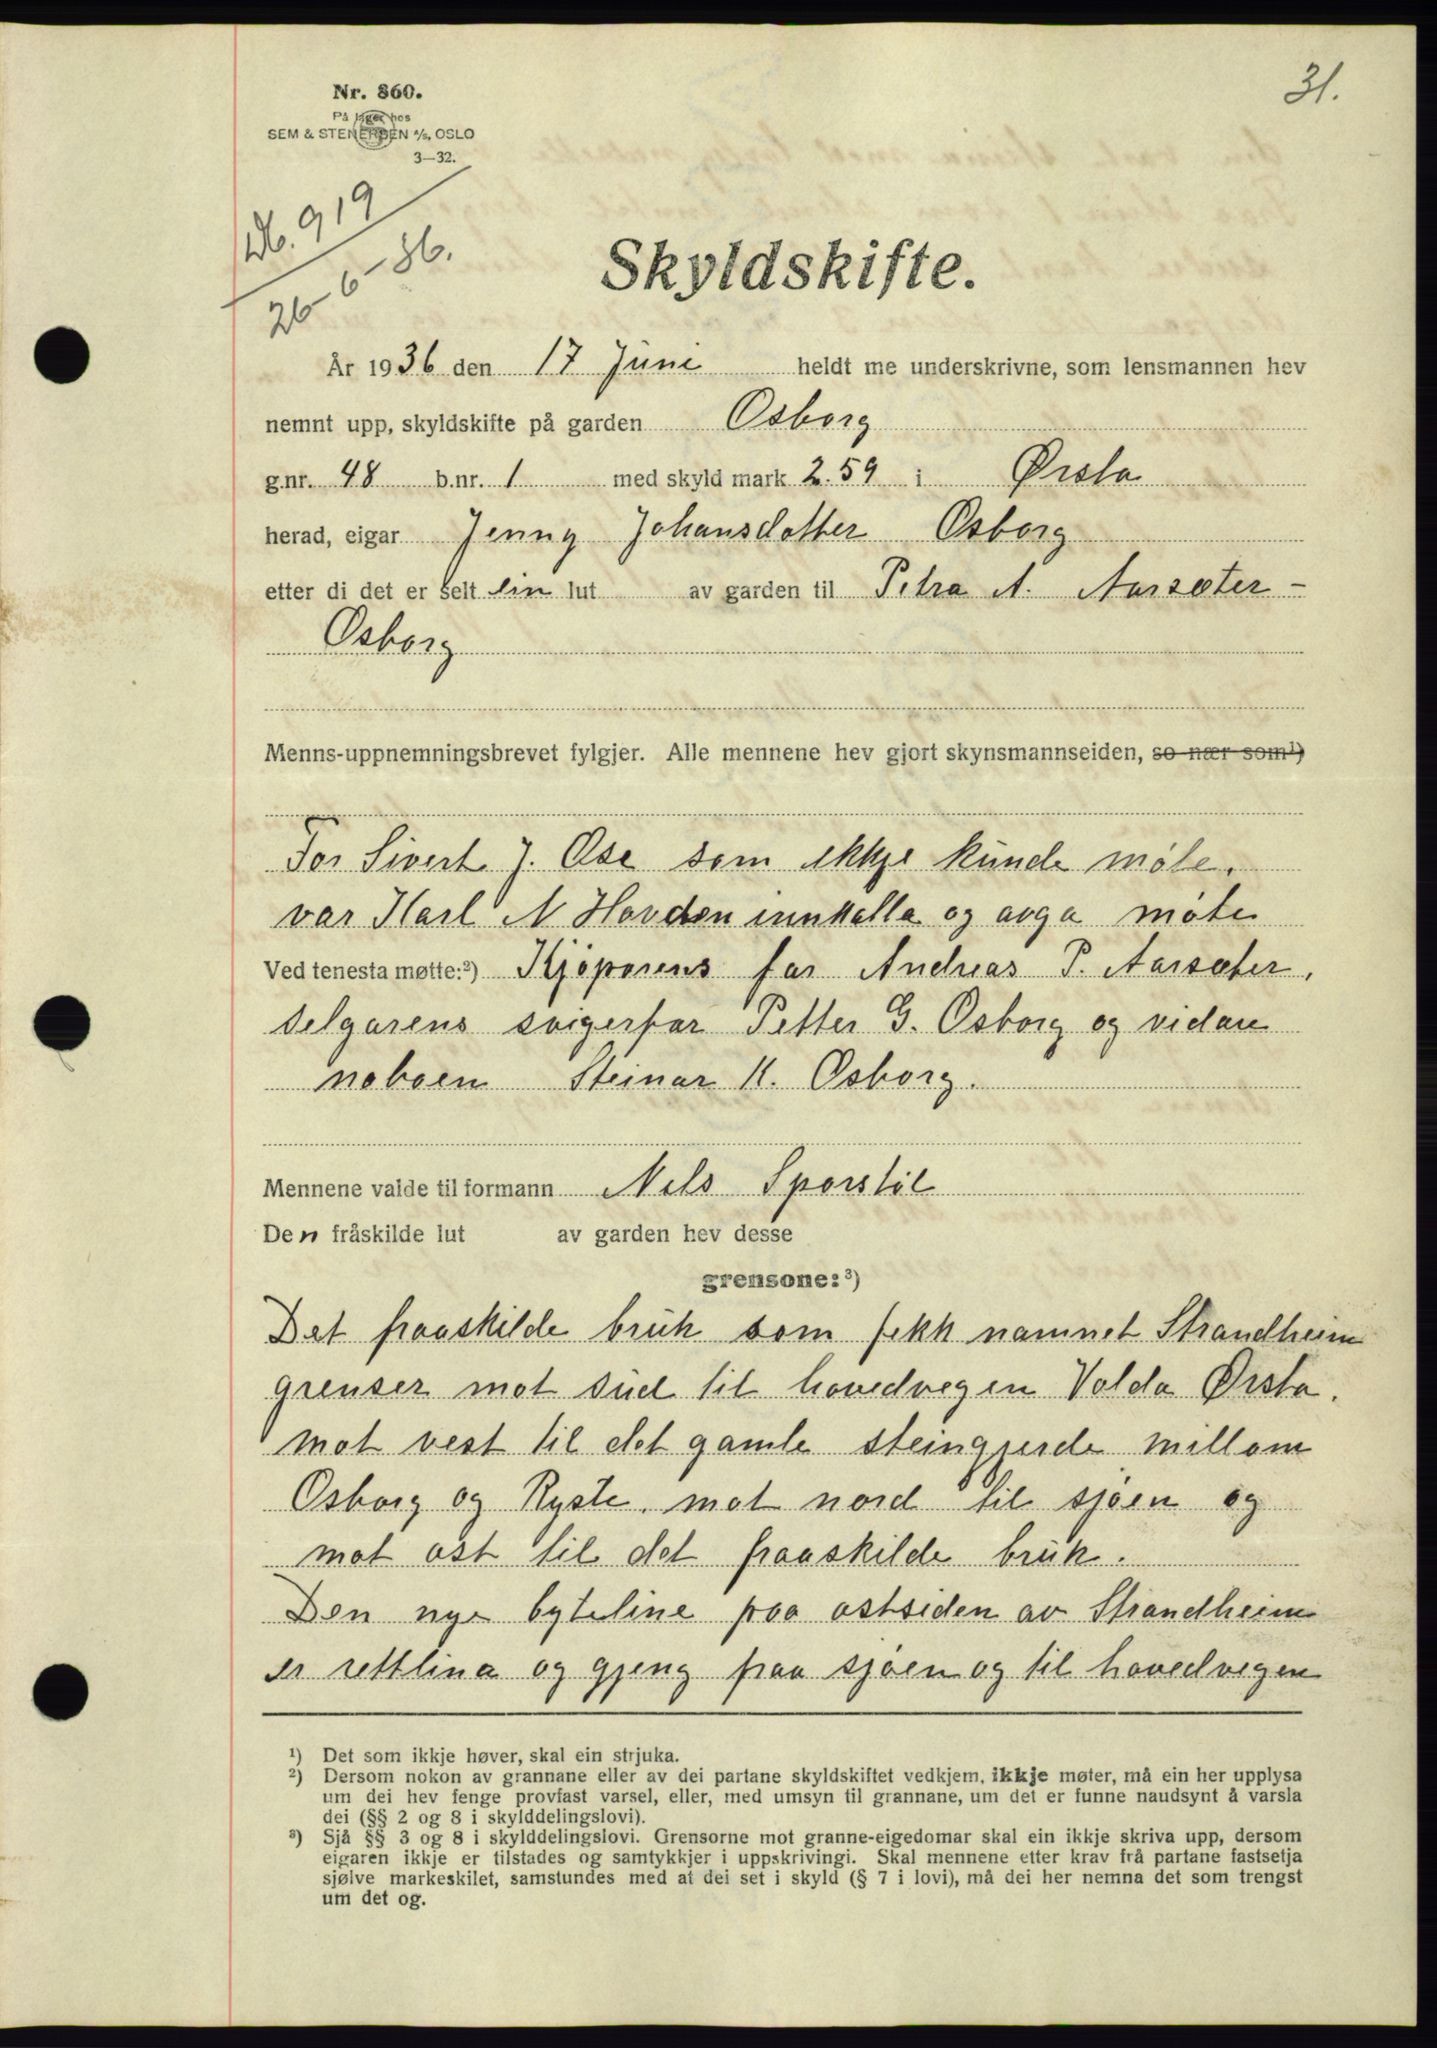 31.
Nr. 860.
På lager hos
SEM & STENERSEN A/S, OSLO
3—32.
Db. 919
26-6-36.
Skyldskifte.
År 1936 den 17 Juni heldt me underskrivne, som lensmannen hev
nemnt upp, skyldskifte på garden Osborg
g.nr. 48 b.nr. 1 med skyld mark 2.59 i Ørsta
herad, eigar Jenny Johansdotter Osborg
etter di det er selt ein lut av garden til Petra A. Aarsæter-
Osborg
Menns-uppnemningsbrevet fylgjer. Alle mennene hev gjort skynsmannseiden, so nær som¹)
For Sivert J. Ose som ikkje kunde møte.
var Karl N Hovden innkalla og avga møte
Ved tenesta møtte:²) Kjøparens far Andreas P. Aarsæter.
selgarens svigerfar Petter G. Osborg og vidare
naboen Steinar K. Osborg.
Mennene valde til formann Nils Sporstøl
Den fråskilde lut av garden hev desse
grensone:³)
Det fraaskilde bruk som fekk namnet Strandheim
grenser mot sud til hovedvegen Volda Ørsta.
mot vest til det gamle steingjerde millom
Osborg og Ryste. mot nord til sjøen og
mot ost til det fraaskilde bruk.
Den nye byteline paa ostsiden av Strandheim
er rettlina og gjeng fraa sjøen og til hovedvegen
¹) Det som ikkje høver, skal ein strjuka.
²) Dersom nokon av grannane eller av dei partane skyldskiftet vedkjem, ikkje møter, må ein her upplysa
um dei hev fenge provfast varsel, eller, med umsyn til grannane, um det er funne naudsynt å varsla
dei (§§ 2 og 8 i skylddelingslovi).
³) Sjå §§ 3 og 8 i skylddelingslovi. Grensorne mot granne-eigedomar skal ein ikkje skriva upp, dersom
eigaren ikkje er tilstades og samtykkjer i uppskrivingi. Skal mennene etter krav frå partane fastsetja
sjølve markeskilet, samstundes med at dei set i skyld (§ 7 i lovi), må dei her nemna det som trengst
um det og.